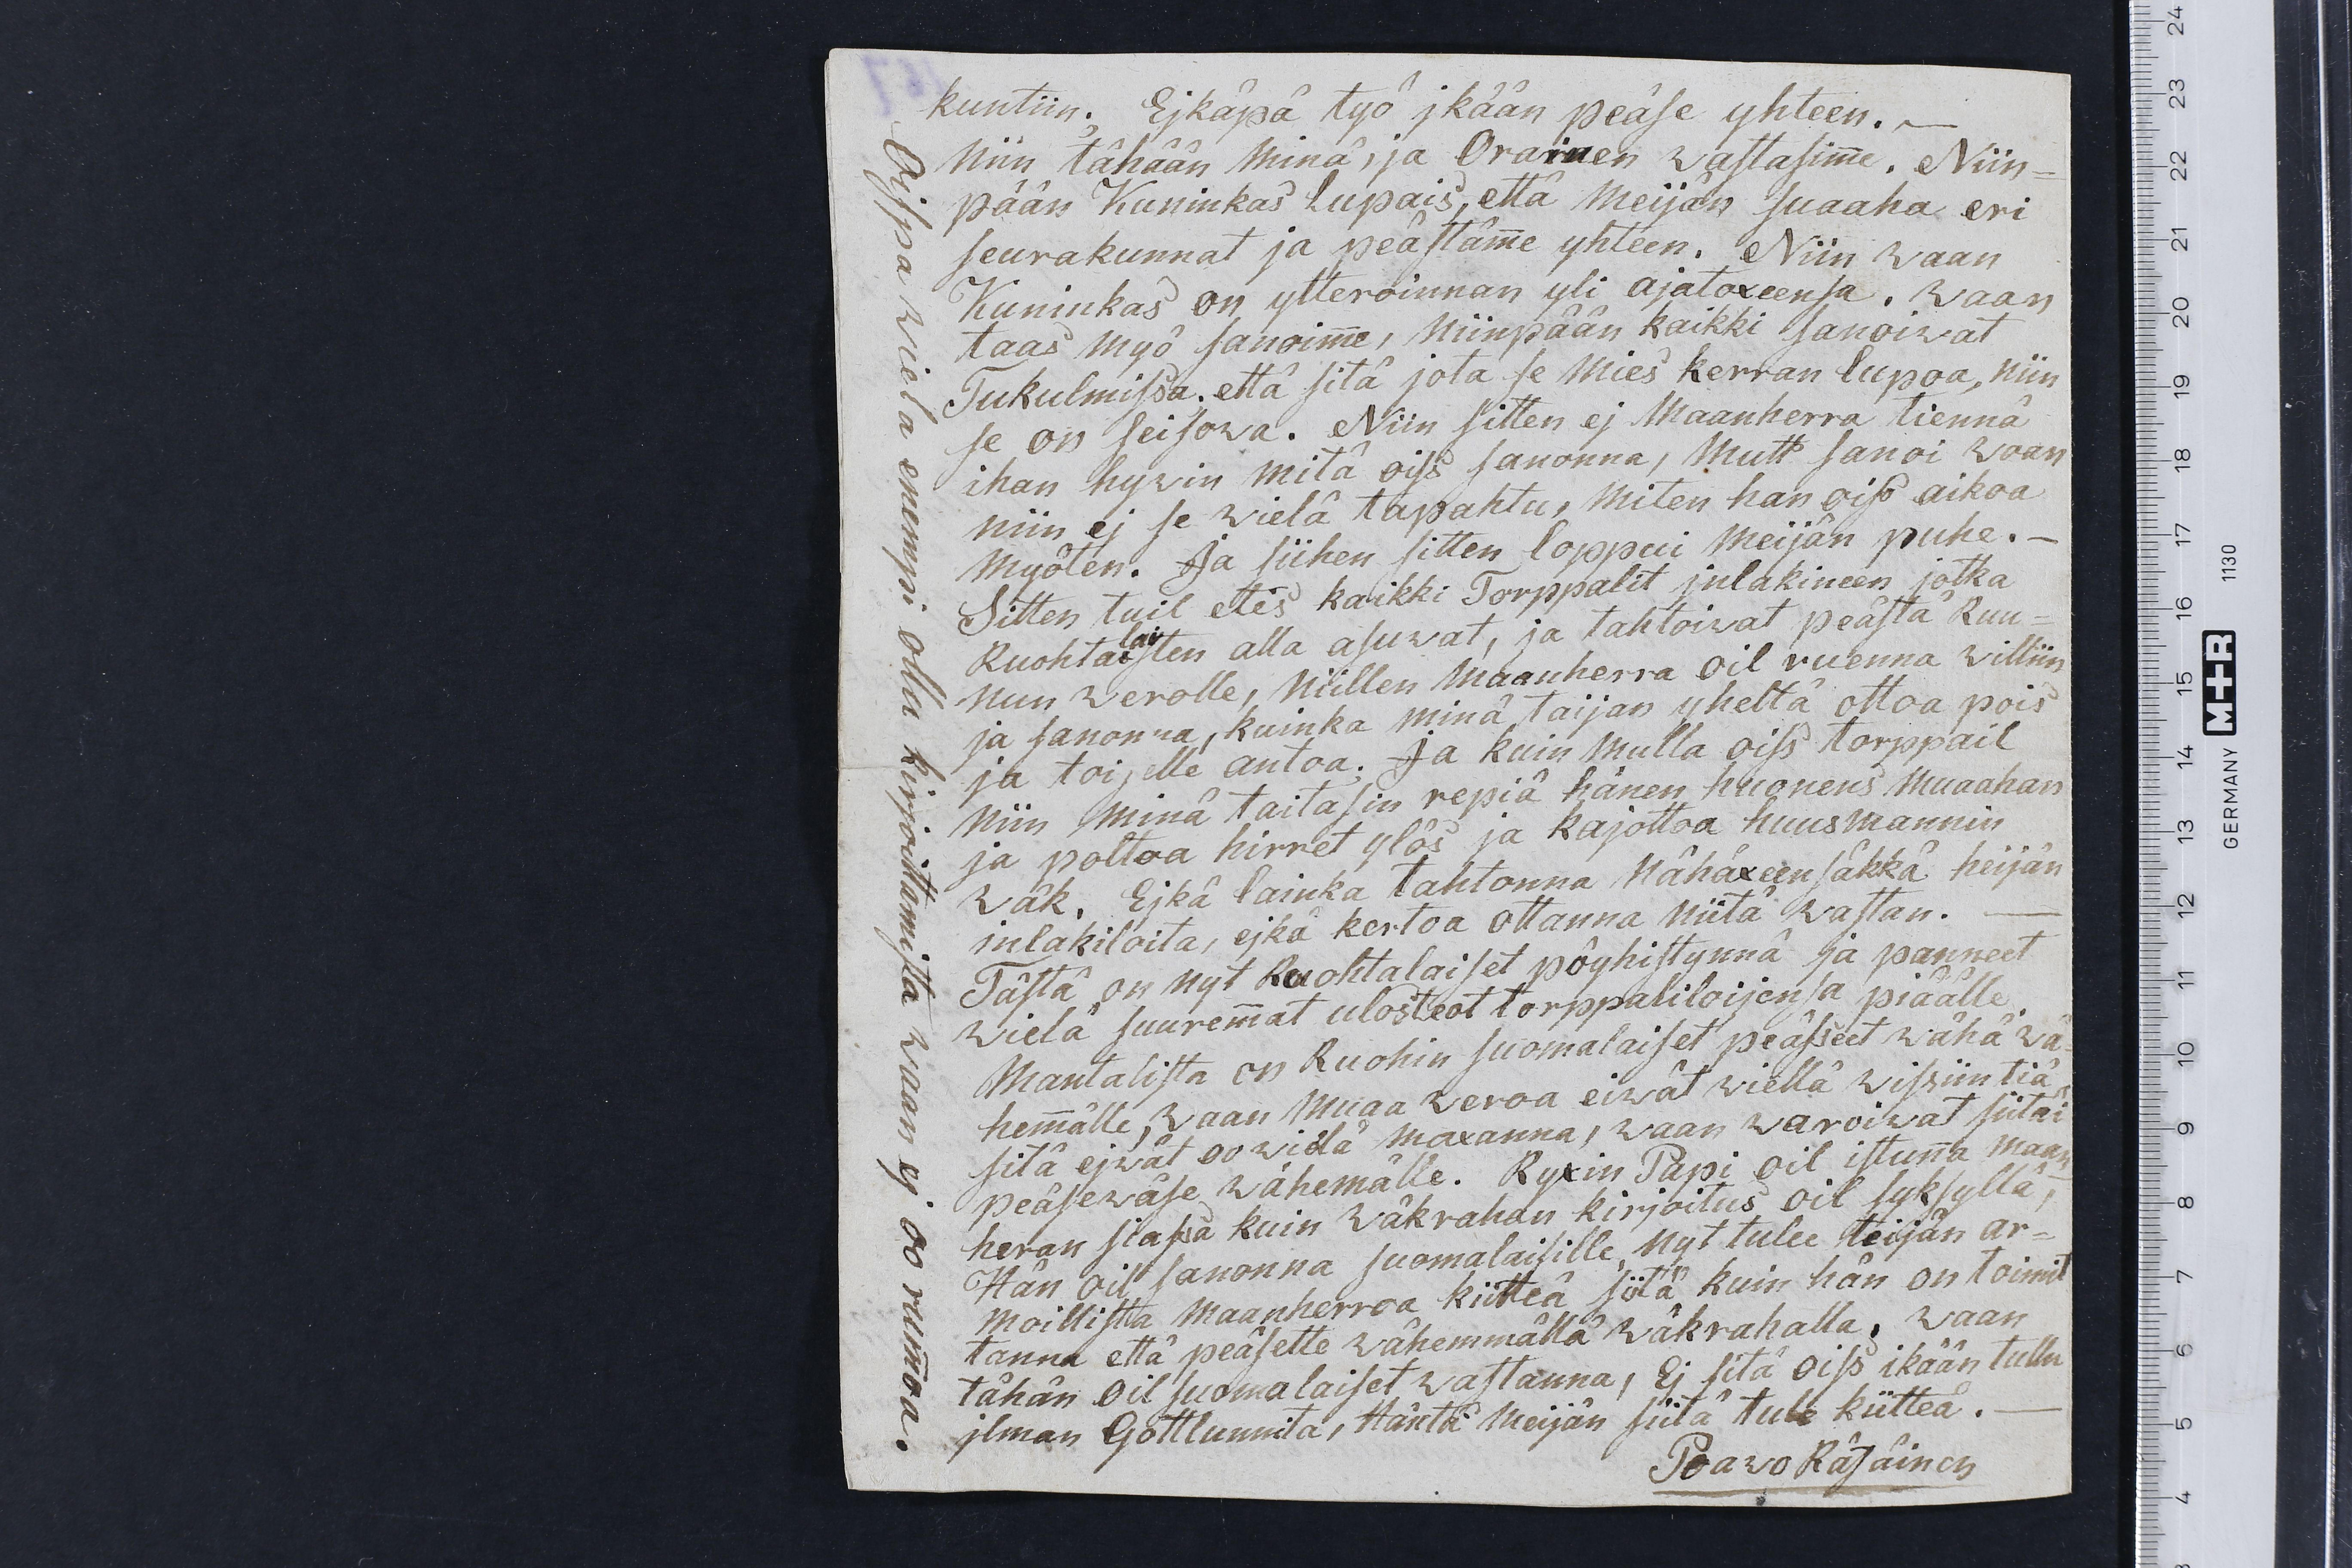 kuntiin. Ejkäpä työ jkään peäse yhteen. —
Niin tähään minä, ja Orainen wastasim̅e. Niin=
pään Kuninkas lupais, että meijän suaaha eri
seurakunnat ja peästäm̅e yhteen. Niin waan
Kuninkas on ytteroinnan yli ajatoxeensa. waan
taas myö sanoim̅e, niinpään kaikki sanoiwat
Tukulmissa. että sitä jota se mies kerran lupoa, niin
se on seisowa. Niin sitten ej Maanherra tiennä
ihan hywin mitä oiss sanonna, mutt sanoi woan
niin ej se wielä tapahtu, miten han oiss aikoa
myöten. Ja siihen sitten loppui meijän puhe. —
Sitten tuil etis kaikki Torppalit jnlakineen jotka
Ruohtalaisten alla asuwat, ja tahtoiwat peästä Ruu=
nun werolle, niillen Maanherra oil ruenna williin
ja sanonna, kuinka minä taijan yheltä ottoa pois
ja toiselle antoa. Ja kuin mulla oiss torppail
niin minä taitasin repiä hänen huonens muaahan
ja polttoa hirret ylös ja kajottoa huusmannin
wäk. Ejkä lainka tahtonna nähäxeensäkkä heijän
inlakiloita, ejkä kertoa ottanna niitä wastan. —
Tästä on nyt Ruohtalaiset pöyhistynnä ja panneet
wielä suurem̅at ulosteot torppaliloijensa piäälle.
Mantalista on Ruohin suomalaiset peässeet wähä wä=
hem̅älle, waan muaa weroa eiwät wiellä wissiin tiä
sitä ejwät oo wielä maxanna, waan waroiwat siitäi
peäsewäse wähemälle. Ryxin Papi oil istun̅a maan
heran siassa kuin wäkrahan kirjoitus oil syksyllä,
Hän oil sanonna suomalaisille, nyt tulee teijän ar=
moillista Maanherroa kiitteä siitä kuin hän on toimit
tanna että peäsette wähemmällä wäkrahalla. waan
tähän oil suomalaiset wastanna, Ej sitä oiss ikään tullu
jlman Gottlunnita, Häntä meijän siitä tule kiitteä. —
Poawo Räsäinen
Oisspa wiela enempi olla kirjoittamista waan ej oo rum̅oa.